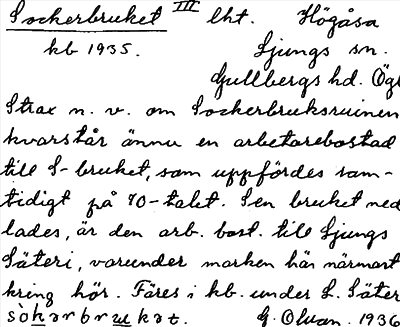 Sockerbruket III lht. Högåsa
kb 1935. Ljungs sn.
Gullbergs hd. Ögl
Strax n. v. om Sockerbruksruinen
kvarstår ännu en arbetarebostad
till S-bruket, som uppfördes sam-
tidigt på 70-talet. Sen bruket ned
lades, är den arb. bost. till Ljungs
Säteri, varunder marken här närmast
kring hör. Föres i kb. under L. Säter
G. Olvan. 1936